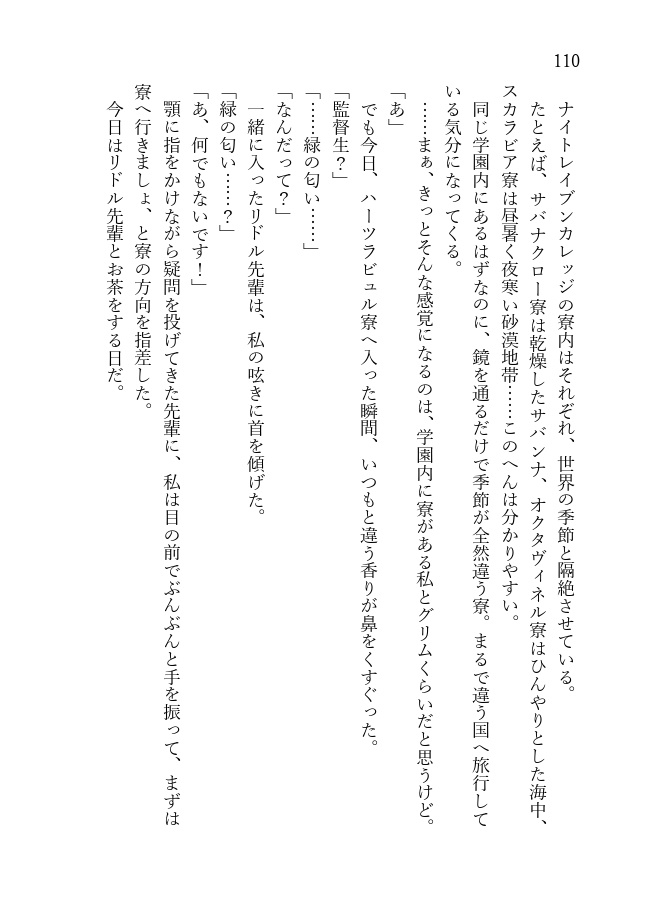 110
ナイトレイブンカレッジの寮内はそれぞれ、世界の季節と隔絶させている。
たとえば、サバナクロー寮は乾燥したサバンナ、オクタヴィネル寮はひんやりとした海中、
スカラビア寮は昼暑く夜寒い砂漠地帯……このへんは分かりやすい。
同じ学園内にあるはずなのに、鏡を通るだけで季節が全然違う寮。まるで違う国へ旅行して
いる気分になってくる。
……まぁ、きっとそんな感覚になるのは、学園内に寮がある私とグリムくらいだと思うけど。
「あ」
でも今日、ハーツラビュル寮へ入った瞬間、いつもと違う香りが鼻をくすぐった。
「監督生？」
「……緑の匂い……」
「なんだって？」
一緒に入ったリドル先輩は、私の呟きに首を傾げた。
「緑の匂い……？」
「あ、何でもないです！」
顎に指をかけながら疑問を投げてきた先輩に、私は目の前でぶんぶんと手を振って、まずは
寮へ行きましょ、と寮の方向を指差した。
今日はリドル先輩とお茶をする日だ。